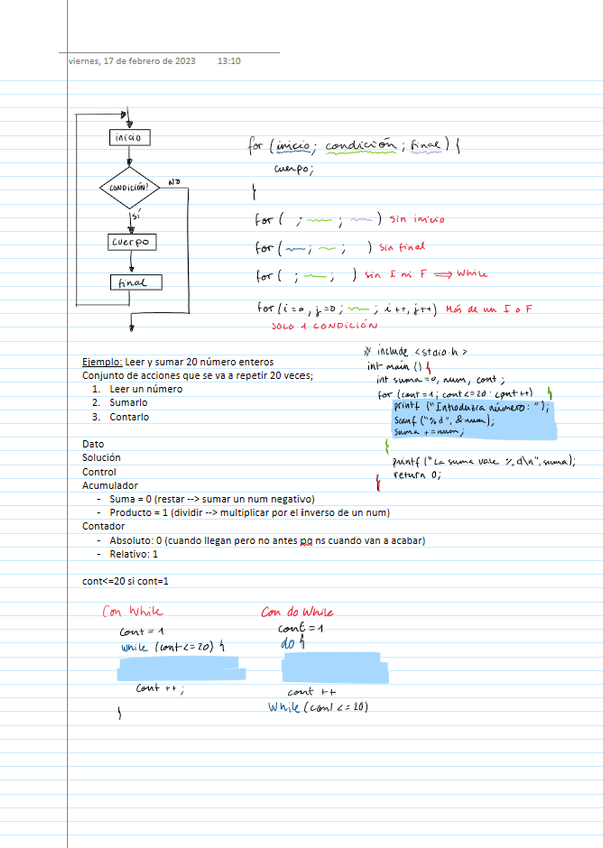 viernes, 17 de febrero de 2023 13:10
inicio
CONDICIÓN?
NO
SÍ
cuerpo
final
for (inicio; condición; final) {
cuerpo;
}
for ( ; ; ) sin inicio
for ( ; ; ) sin final
for ( ; ; ) sin I ni F ⟹ While
for (i=0, j=0; ; i++, j++) Más de un I o F
SOLO 1 CONDICIÓN
Ejemplo: Leer y sumar 20 número enteros
Conjunto de acciones que se va a repetir 20 veces;
1. Leer un número
2. Sumarlo
3. Contarlo
Dato
Solución
Control
Acumulador
- Suma = 0 (restar --> sumar un num negativo)
- Producto = 1 (dividir --> multiplicar por el inverso de un num)
Contador
- Absoluto: 0 (cuando llegan pero no antes pq ns cuando van a acabar)
- Relativo: 1
cont<=20 si cont=1
# include <stdio.h>
int main () {
int suma=0, num, cont;
for (cont=1; cont<=20; cont++) {
printf ("Introduzca número: ");
scanf ("%d", &num);
suma += num;
}
printf ("La suma vale %d\n", suma);
return 0;
}
Con While
cont = 1
while (cont<=20) {
cont ++;
}
Con do While
cont = 1
do {
cont ++
While (cont <= 20)